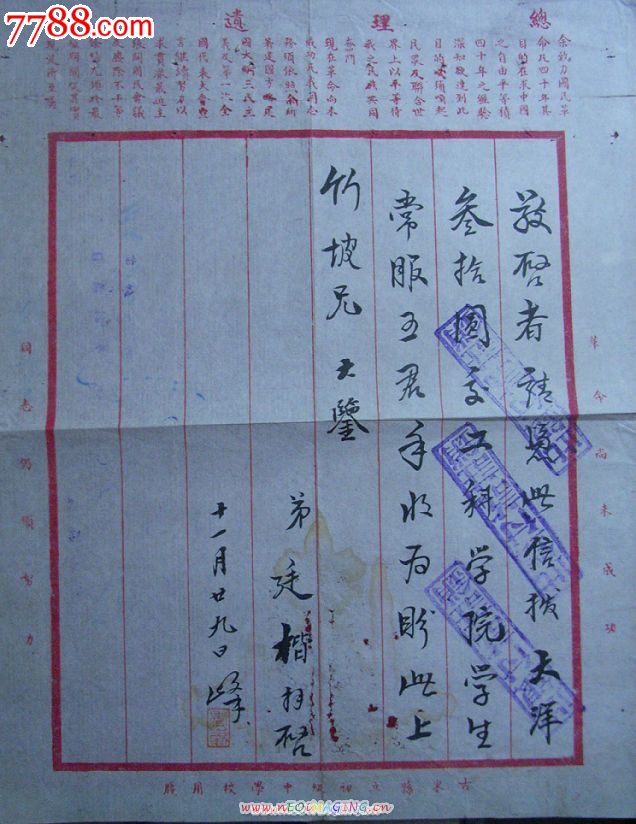 7788.com
總理遺
余致力國民革
命凡四十年其
目的在求中國
之自由平等積
四十年之經驗
深知欲達到此
目的必須喚起
民眾及聯合世
界上以平等待
我之民族共同
奮鬥
現在革命尚未
成功凡我同志
務須依照余所
著建國方略建
國大綱三民主
義及第一次全
國代表大會宣
言繼續努力以
求貫澈最近主
張開國民會議
及廢除不平等
革命尚未成功
敬啓者請憑此信撥大洋
叁拾圓交工科学院学生
常服五君手收為盼此上
竹坡兄大鑒
弟廷楷拜啓
十一月廿九日
同志仍須努力
縣立初級中學校用牋
www.nEOiMAGING.cn